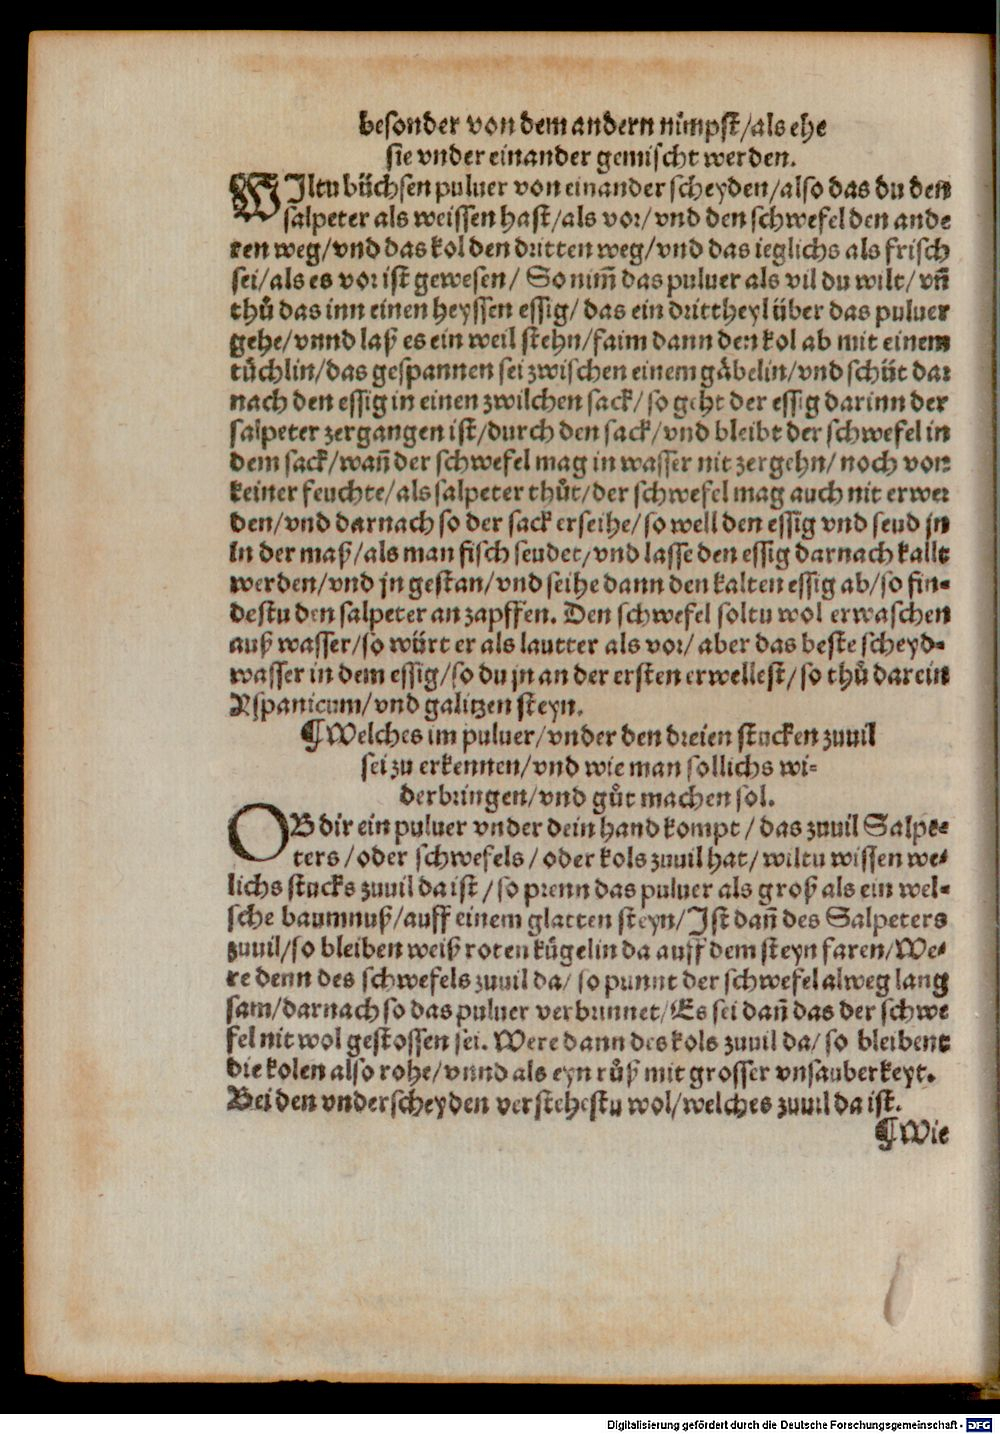 besonder von dem andern nimpst/als ehe
sie vnder einander gemischt werden.
WIltu büchsen puluer von einander scheyden/also das du den
salpeter als weissen hast/als vor/vnd den schwefel den ande
ren weg/vnd das kol den dritten weg/vnd das ieglichs als frisch
sei/als es vor ist gewesen/ So nim̃ das puluer als vil du wilt/ vñ
thů das inn einen heyssen essig/ das ein drittheyl über das puluer
gehe/vnnd laß es ein weil stehn/faim dann den kol ab mit einem
tüchlin/das gespannen sei zwischen einem gäbelin/vnd schüt dar
nach den essig in einen zwilchen sack/ so geht der essig darinn der
salpeter zergangen ist/durch den sack/vnd bleibt der schwefel in
dem sack/wañ der schwefel mag in wasser nit zergehn/ noch von
keiner feuchte/als salpeter thůt/der schwefel mag auch nit erwer
den/vnd darnach so der sack erseihe/so well den essig vnd seud jn
in der maß/als man fisch seudet/vnd lasse den essig darnach kallt
werden/vnd jn gestan/vnd seihe dann den kalten essig ab/so fin-
destu den salpeter an zapffen. Den schwefel soltu wol erwaschen
auß wasser/so würt er als lautter als vor/ aber das beste scheyd-
wasser in dem essig/so du jn an der ersten erwellest/so thů darein
Yspanicum/vnd galitzen steyn.
¶Welches im puluer/vnder den dreien stucken zuuil
sei zu erkennen/vnd wie man sollichs wi-
derbringen/vnd gůt machen sol.
OB dir ein puluer vnder dein hand kompt/das zuuil Salpe-
ters/oder schwefels/oder kols zuuil hat/wiltu wissen we-
lichs stucks zuuil da ist/so prenn das puluer als groß als ein wel-
sche baumnuß/auff einem glatten steyn/Ist dañ des Salpeters
zuuil/so bleiben weiß roten kügelin da auff dem steyn faren/We-
re denn des schwefels zuuil da/ so prunnt der schwefel alweg lang
sam/darnach so das puluer verbrunnet/Es sei dañ das der schwe
fel nit wol gestossen sei. Were dann des kols zuuil da/ so bleibent
die kolen also rohe/vnnd als eyn růß mit grosser vnsauberkeyt.
Bei den vnderscheyden verstehestu wol/welches zuuil da ist.
¶Wie
Digitalisierung gefördert durch die Deutsche Forschungsgemeinschaft - DFG